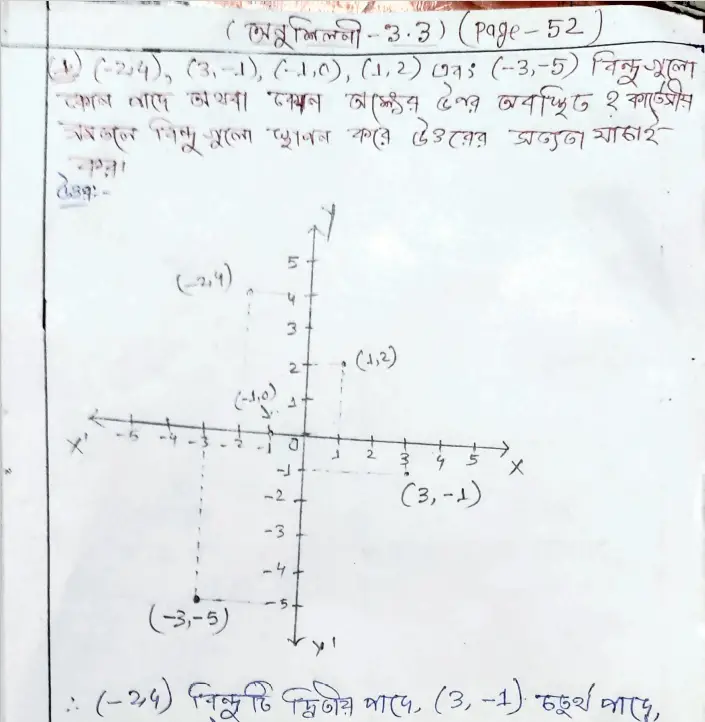 (অনুশিলনী - 3.3) (page - 52)
(1) (-2,4), (3,-1), (-1,0), (1,2) এবং (-3,-5) বিন্দুগুলো
কোন পাদে অথবা কোন অক্ষের উপর অবস্থিত? কার্তেসীয়
সমতলে বিন্দুগুলো স্থাপন করে উত্তরের সত্যতা যাচাই
করা।
উত্তর:-
y
5
(-2,4)
4
3
2
(1,2)
(-1,0)
1
X'
-5 -4 -3 -2 -1 0 1 2 3 4 5
X
-1
(3,-1)
-2
-3
-4
-5
(-3,-5)
y'
∴ (-2,4) বিন্দুটি দ্বিতীয় পাদে, (3,-1) চতুর্থ পাদে,